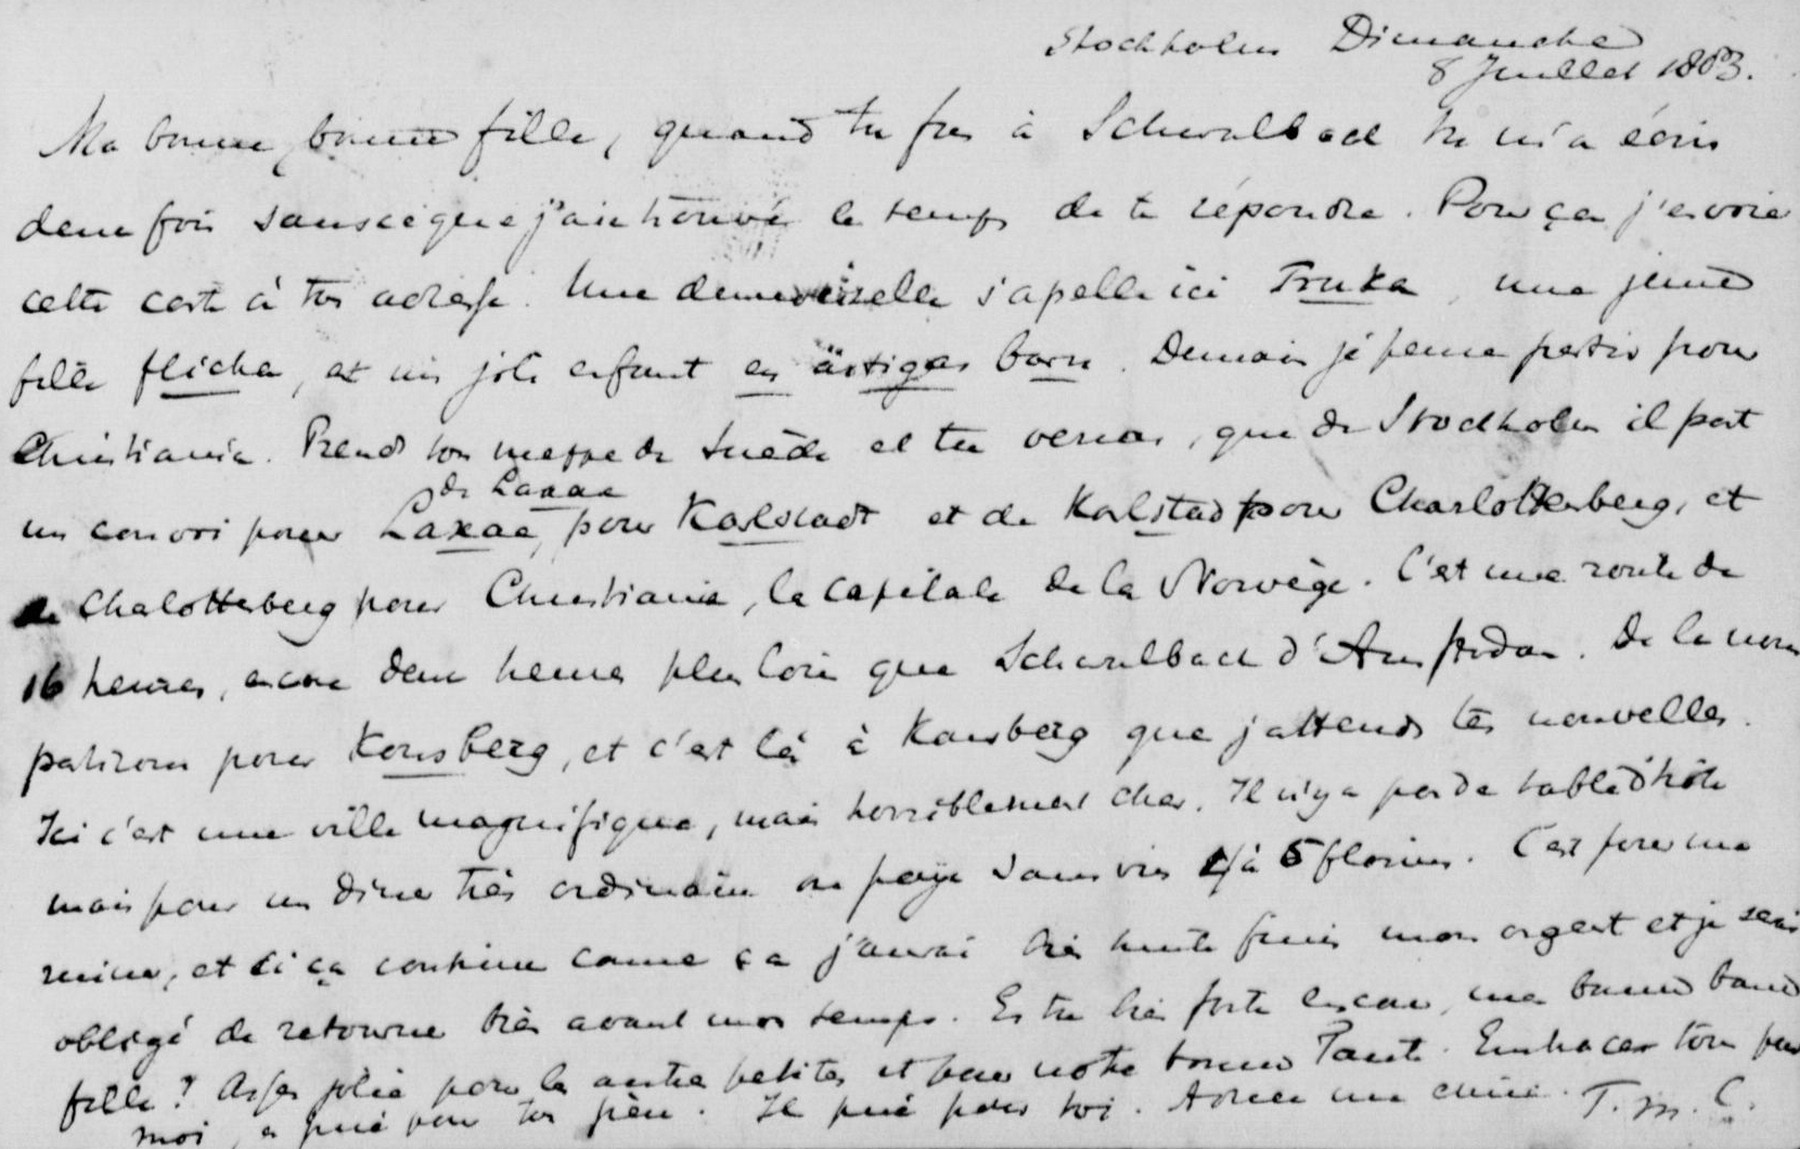 Stockholm Dimanche
8 Juillet 1883.
Ma bonne, bonne fille, quand tu fus à Schwalbach tu m'a écris
deux fois sans ce que j'aie trouvé le temps de te répondre. Pour ça j'envoie
cette carte à ton adresse. Une demoiselle s'apelle ici Fruka, une jeune
fille flicka, et un joli enfant en artigas barn. Demain je pense partir pour
Christiania. Prends ton mappe de Suède et tu verras, que de Stockholm il part
de Laxaa
un convoi pour Laxaa, pour Karlstadt et de Karlstad pour Charlottenberg, et
de Chalottenberg pour Christiania, la capitale de la Norvège. C'est une route de
16 heures, encore deux heures plus loin que Schwalbach d'Amsterdam. De là nous
patirons pour Konsberg, et c'est là à Konsberg que j'attends tes nouvelles.
Ici c'est une ville magnifique, mais horriblement cher. Il n'y a pas de table d'hôte
mais pour un diner très ordinaire on paye sans vin 4 à 5 florins. C'est pour me
ruiner, et si ça continue comme ça j'aurai très vite finis mon argent et je serai
obligé de retourner très avant mon temps. Es tu très forte encore, ma bonne bonne
fille? Assez jolie pour les autres petites et pour notre bonne Tante. Embrasser ton
moi, et prie pour ton père. Il prie pour toi. T. m. C.